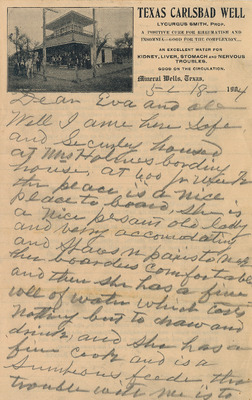 TEXAS CARLSBAD WELL
LYCURGUS SMITH, PROP.
A POSITIVE CURE FOR RHEUMATISM AND
INSOMNIA—GOOD FOR THE COMPLEXION
AN EXCELLENT WATER FOR
KIDNEY, LIVER, STOMACH AND NERVOUS
TROUBLES.
GOOD ON THE CIRCULATION.
Mineral Wells, Texas,
Dear Eva and all
Well I am here safe
and Securley housed
at Mrs Holmes bording
house, at 400
the place is a nice
place to board, she is
a nice plesant old lady
and verry accomodating
and Spares no pains to make
her boarders comfortable
and then she has a fine
well of water which costs
nothing but to draw and
drink, and she has a
fine cook and is a
Sumpeous feeder the
trouble with me is to